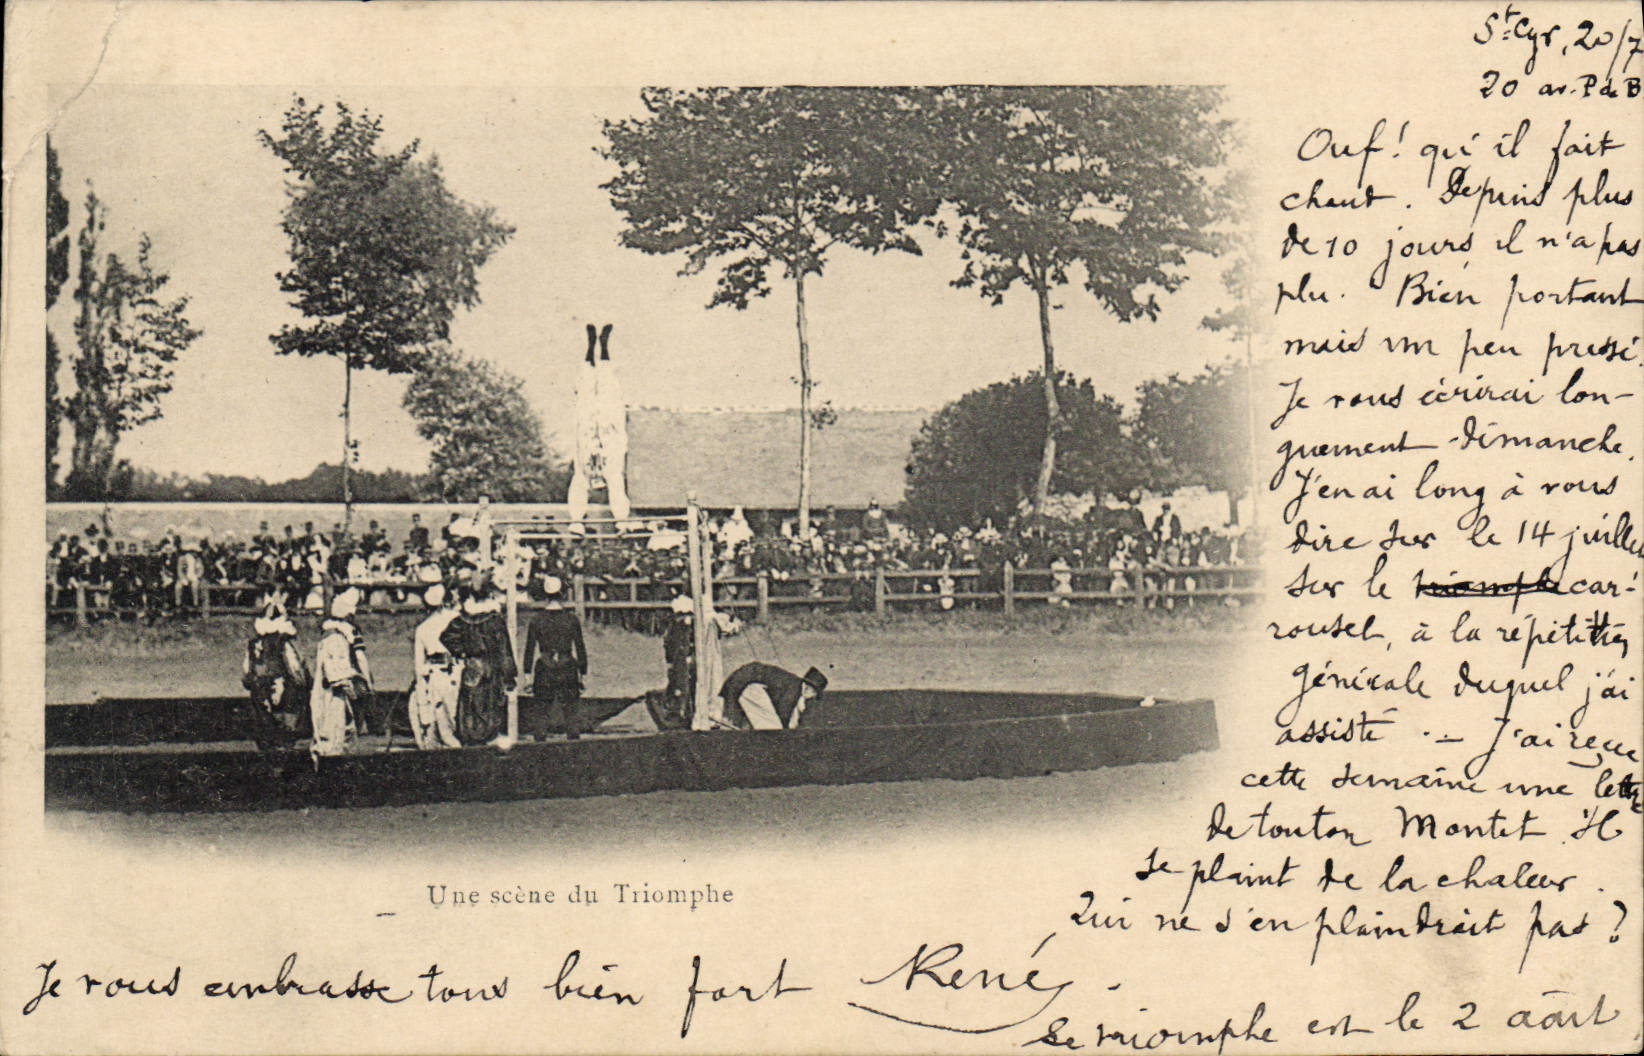 St Cyr, 20/7
20 av. P de B
Ouf! qu'il fait
chaud. Depuis plus
de 10 jours il n'a pas
plu. Bien portant
mais un peu pressé.
Je vous écrirai lon-
guement dimanche.
J'en ai long à vous
dire sur le 14 juillet
sur le triomphe car-
rousel, à la répétition
générale duquel j'ai
assisté. — J'ai reçue
cette semaine une lettre
de tonton Montet. Il
se plaint de la chaleur.
Qui ne s'en plaindrait pas?
Une scène du Triomphe
Je vous embrasse tous bien fort René.
Le triomphe est le 2 août